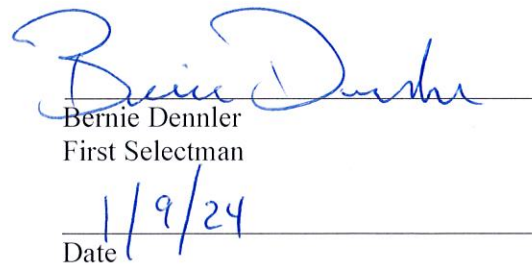 Bernie Dennler
Bernie Dennler
First Selectman
1/9/24
Date